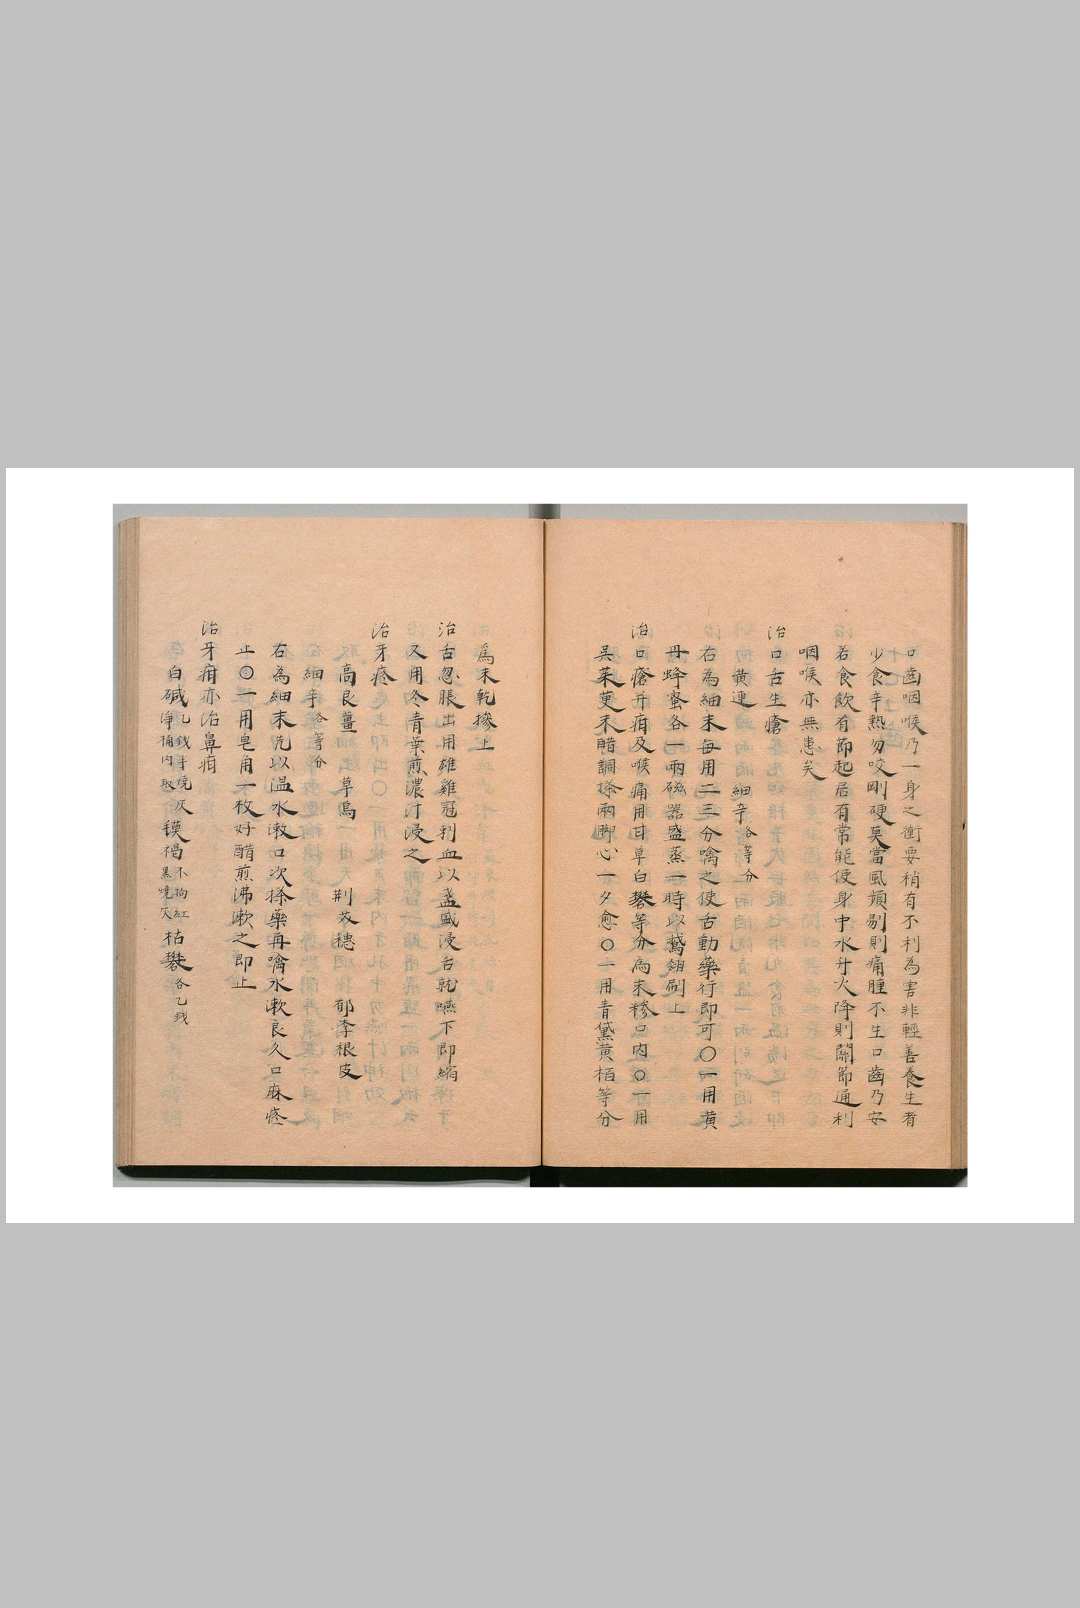 口齒咽喉乃一身之衝要稍有不利為害非輕善養生者
少食辛熱勿咬剛硬莫當風頭剔則痛腫不生口齒乃安
若食飲有節起居有常能使身中水升火降則關節通利
咽喉亦無患矣
治口舌生瘡
黃連 細辛各等分
右為細末每用二三分噙之使舌動藥行即可〇一用黃
丹蜂蜜各一兩磁器盛蒸一時以鵞翎刷上
治口瘡牙疳及喉痛用甘草白礬等分為末糝口內〇一用
吳茱萸末醋調搽兩脚心一夕愈〇一用青黛黃栢等分
為末乾摻上
治舌忽脹出用雄雞冠刺血以盞盛浸舌就嚥下即縮
又用冬青葉煎濃汁浸之
治牙疼
高良薑 草烏 荆芥穗 郁李根皮
細辛各等分
右為細末先以温水漱口次搽藥再噙水漱良久口麻疼
止〇一用皂角一枚好醋煎沸漱之即止
治牙疳亦治鼻疳
白碱乙錢淨桶內取 燒灰 褐不拘紅黑燒灰 枯礬各乙戔